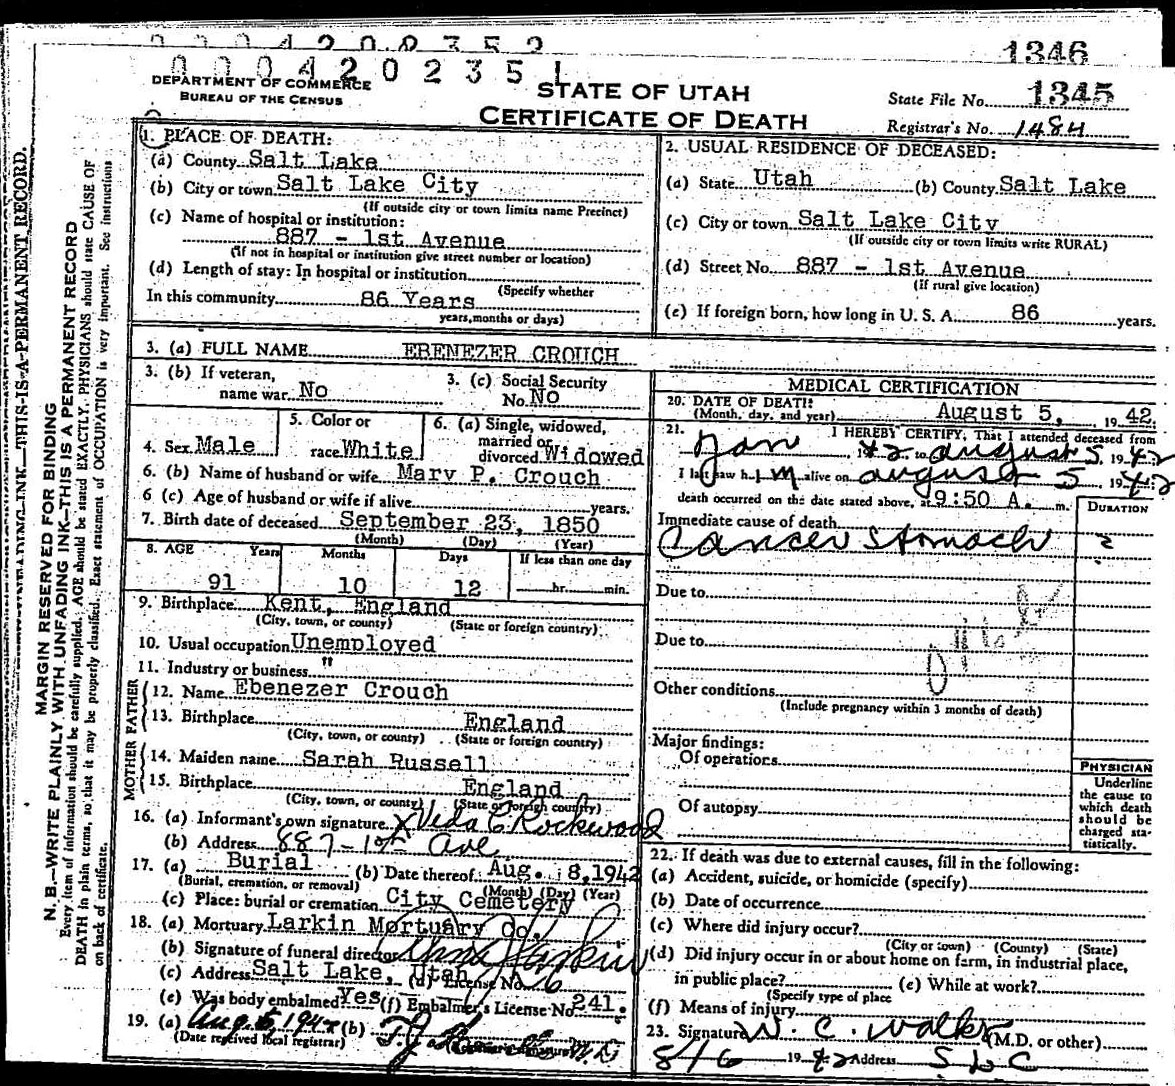 1346
0 0 0 4 2 0 2 3 5 1
DEPARTMENT OF COMMERCE
BUREAU OF THE CENSUS
STATE OF UTAH
CERTIFICATE OF DEATH
State File No. 1345
Registrar's No. 1484
MARGIN RESERVED FOR BINDING
N. B.—WRITE PLAINLY WITH UNFADING INK—THIS IS A PERMANENT RECORD
Every item of information should be carefully supplied. AGE should be stated EXACTLY. PHYSICIANS should state CAUSE OF
DEATH in plain terms, so that it may be properly classified. Exact statement of OCCUPATION is very important. See instructions
on back of certificate.
1. PLACE OF DEATH:
(a) County Salt Lake
(b) City or town Salt Lake City
(If outside city or town limits name Precinct)
(c) Name of hospital or institution:
887 - 1st Avenue
(If not in hospital or institution give street number or location)
(d) Length of stay: In hospital or institution
(Specify whether
In this community 86 Years
years, months or days)
2. USUAL RESIDENCE OF DECEASED:
(a) State Utah (b) County Salt Lake
(c) City or town Salt Lake City
(If outside city or town limits write RURAL)
(d) Street No. 887 - 1st Avenue
(If rural give location)
(e) If foreign born, how long in U. S. A. 86 years.
3. (a) FULL NAME EBENEZER CROUCH
3. (b) If veteran, name war No
3. (c) Social Security No. No
4. Sex Male
5. Color or race White
6. (a) Single, widowed, married or divorced Widowed
6. (b) Name of husband or wife Mary P. Crouch
6 (c) Age of husband or wife if alive years.
7. Birth date of deceased September 23, 1850
(Month) (Day) (Year)
8. AGE Years Months Days If less than one day
91 10 12 hr. min.
9. Birthplace Kent, England
(City, town, or county) (State or foreign country)
10. Usual occupation Unemployed
11. Industry or business "
FATHER
12. Name Ebenezer Crouch
13. Birthplace England
(City, town, or county) (State or foreign country)
MOTHER
14. Maiden name Sarah Russell
15. Birthplace England
(City, town, or county) (State or foreign country)
16. (a) Informant's own signature x Veda C. Rockwood
(b) Address 887 - 1st Ave
17. (a) Burial (b) Date thereof Aug. 8, 1942
(Burial, cremation, or removal) (Month) (Day) (Year)
(c) Place: burial or cremation City Cemetery
18. (a) Mortuary Larkin Mortuary Co.
(b) Signature of funeral director Larkin
(c) Address Salt Lake, Utah (d) License No. 76
(e) Was body embalmed Yes (f) Embalmer's License No. 241.
19. (a) Aug. 5, 1942 (b) T. J. M.D.
(Date received local registrar)
MEDICAL CERTIFICATION
20. DATE OF DEATH:
(Month, day, and year) August 5, 1942.
21. I HEREBY CERTIFY, That I attended deceased from
Jan 1942 to August 5, 1942
I last saw him alive on August 5, 1942
death occurred on the date stated above, at 9:50 A. m.
DURATION
Immediate cause of death
Cancer Stomach 2
Due to
Due to
Other conditions
(Include pregnancy within 3 months of death)
Major findings:
Of operations
Of autopsy
PHYSICIAN
Underline
the cause to
which death
should be
charged sta-
tistically.
22. If death was due to external causes, fill in the following:
(a) Accident, suicide, or homicide (specify)
(b) Date of occurrence
(c) Where did injury occur?
(City or town) (County) (State)
(d) Did injury occur in or about home on farm, in industrial place,
in public place? (e) While at work?
(Specify type of place
(f) Means of injury
23. Signature W. C. Walker (M.D. or other)
8/6 1942 Address S L C